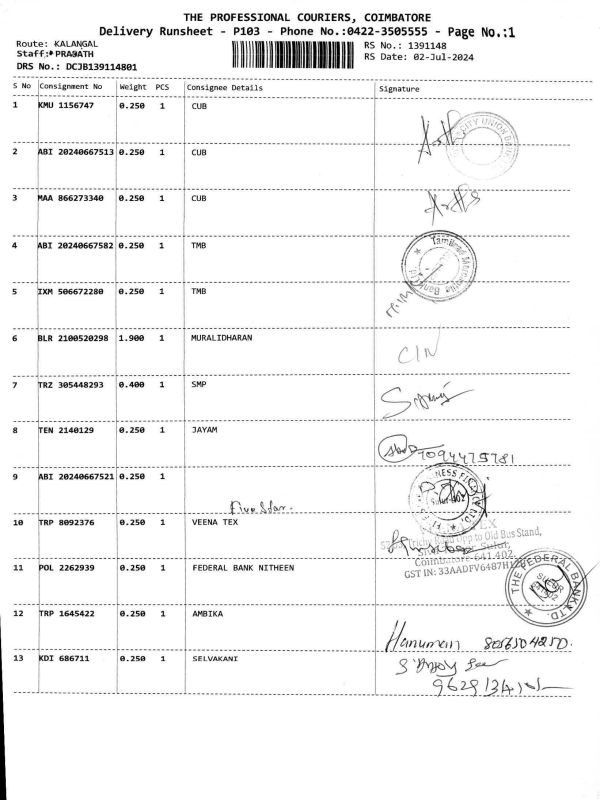 THE PROFESSIONAL COURIERS, COIMBATORE
Delivery Runsheet - P103 - Phone No.:0422-3505555 - Page No.:1
Route: KALANGAL
RS No.: 1391148
Staff:* PRASATH
RS Date: 02-Jul-2024
DRS No.: DCJB139114801
S No Consignment No Weight PCS Consignee Details Signature
1 KMU 1156747 0.250 1 CUB
2 ABI 20240667513 0.250 1 CUB
3 MAA 866273340 0.250 1 CUB
4 ABI 20240667582 0.250 1 TMB
5 IXM 506672280 0.250 1 TMB
6 BLR 2100520298 1.900 1 MURALIDHARAN
C/N
7 TRZ 305448293 0.400 1 SMP
8 TEN 2140129 0.250 1 JAYAM
7094475781
9 ABI 20240667521 0.250 1
Five Star
10 TRP 8092376 0.250 1 VEENA TEX
Opp to Old Bus Stand,
Sulur,
Coimbatore - 641 402.
11 POL 2262939 0.250 1 FEDERAL BANK NITHEEN
THE FEDERAL BANK LTD.
12 TRP 1645422 0.250 1 AMBIKA
Hanuman
13 KDI 686711 0.250 1 SELVAKANI